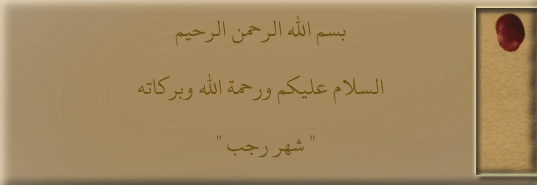 بسم الله الرحمن الرحيم
السلام عليكم ورحمة الله وبركاته
" شهر رجب "